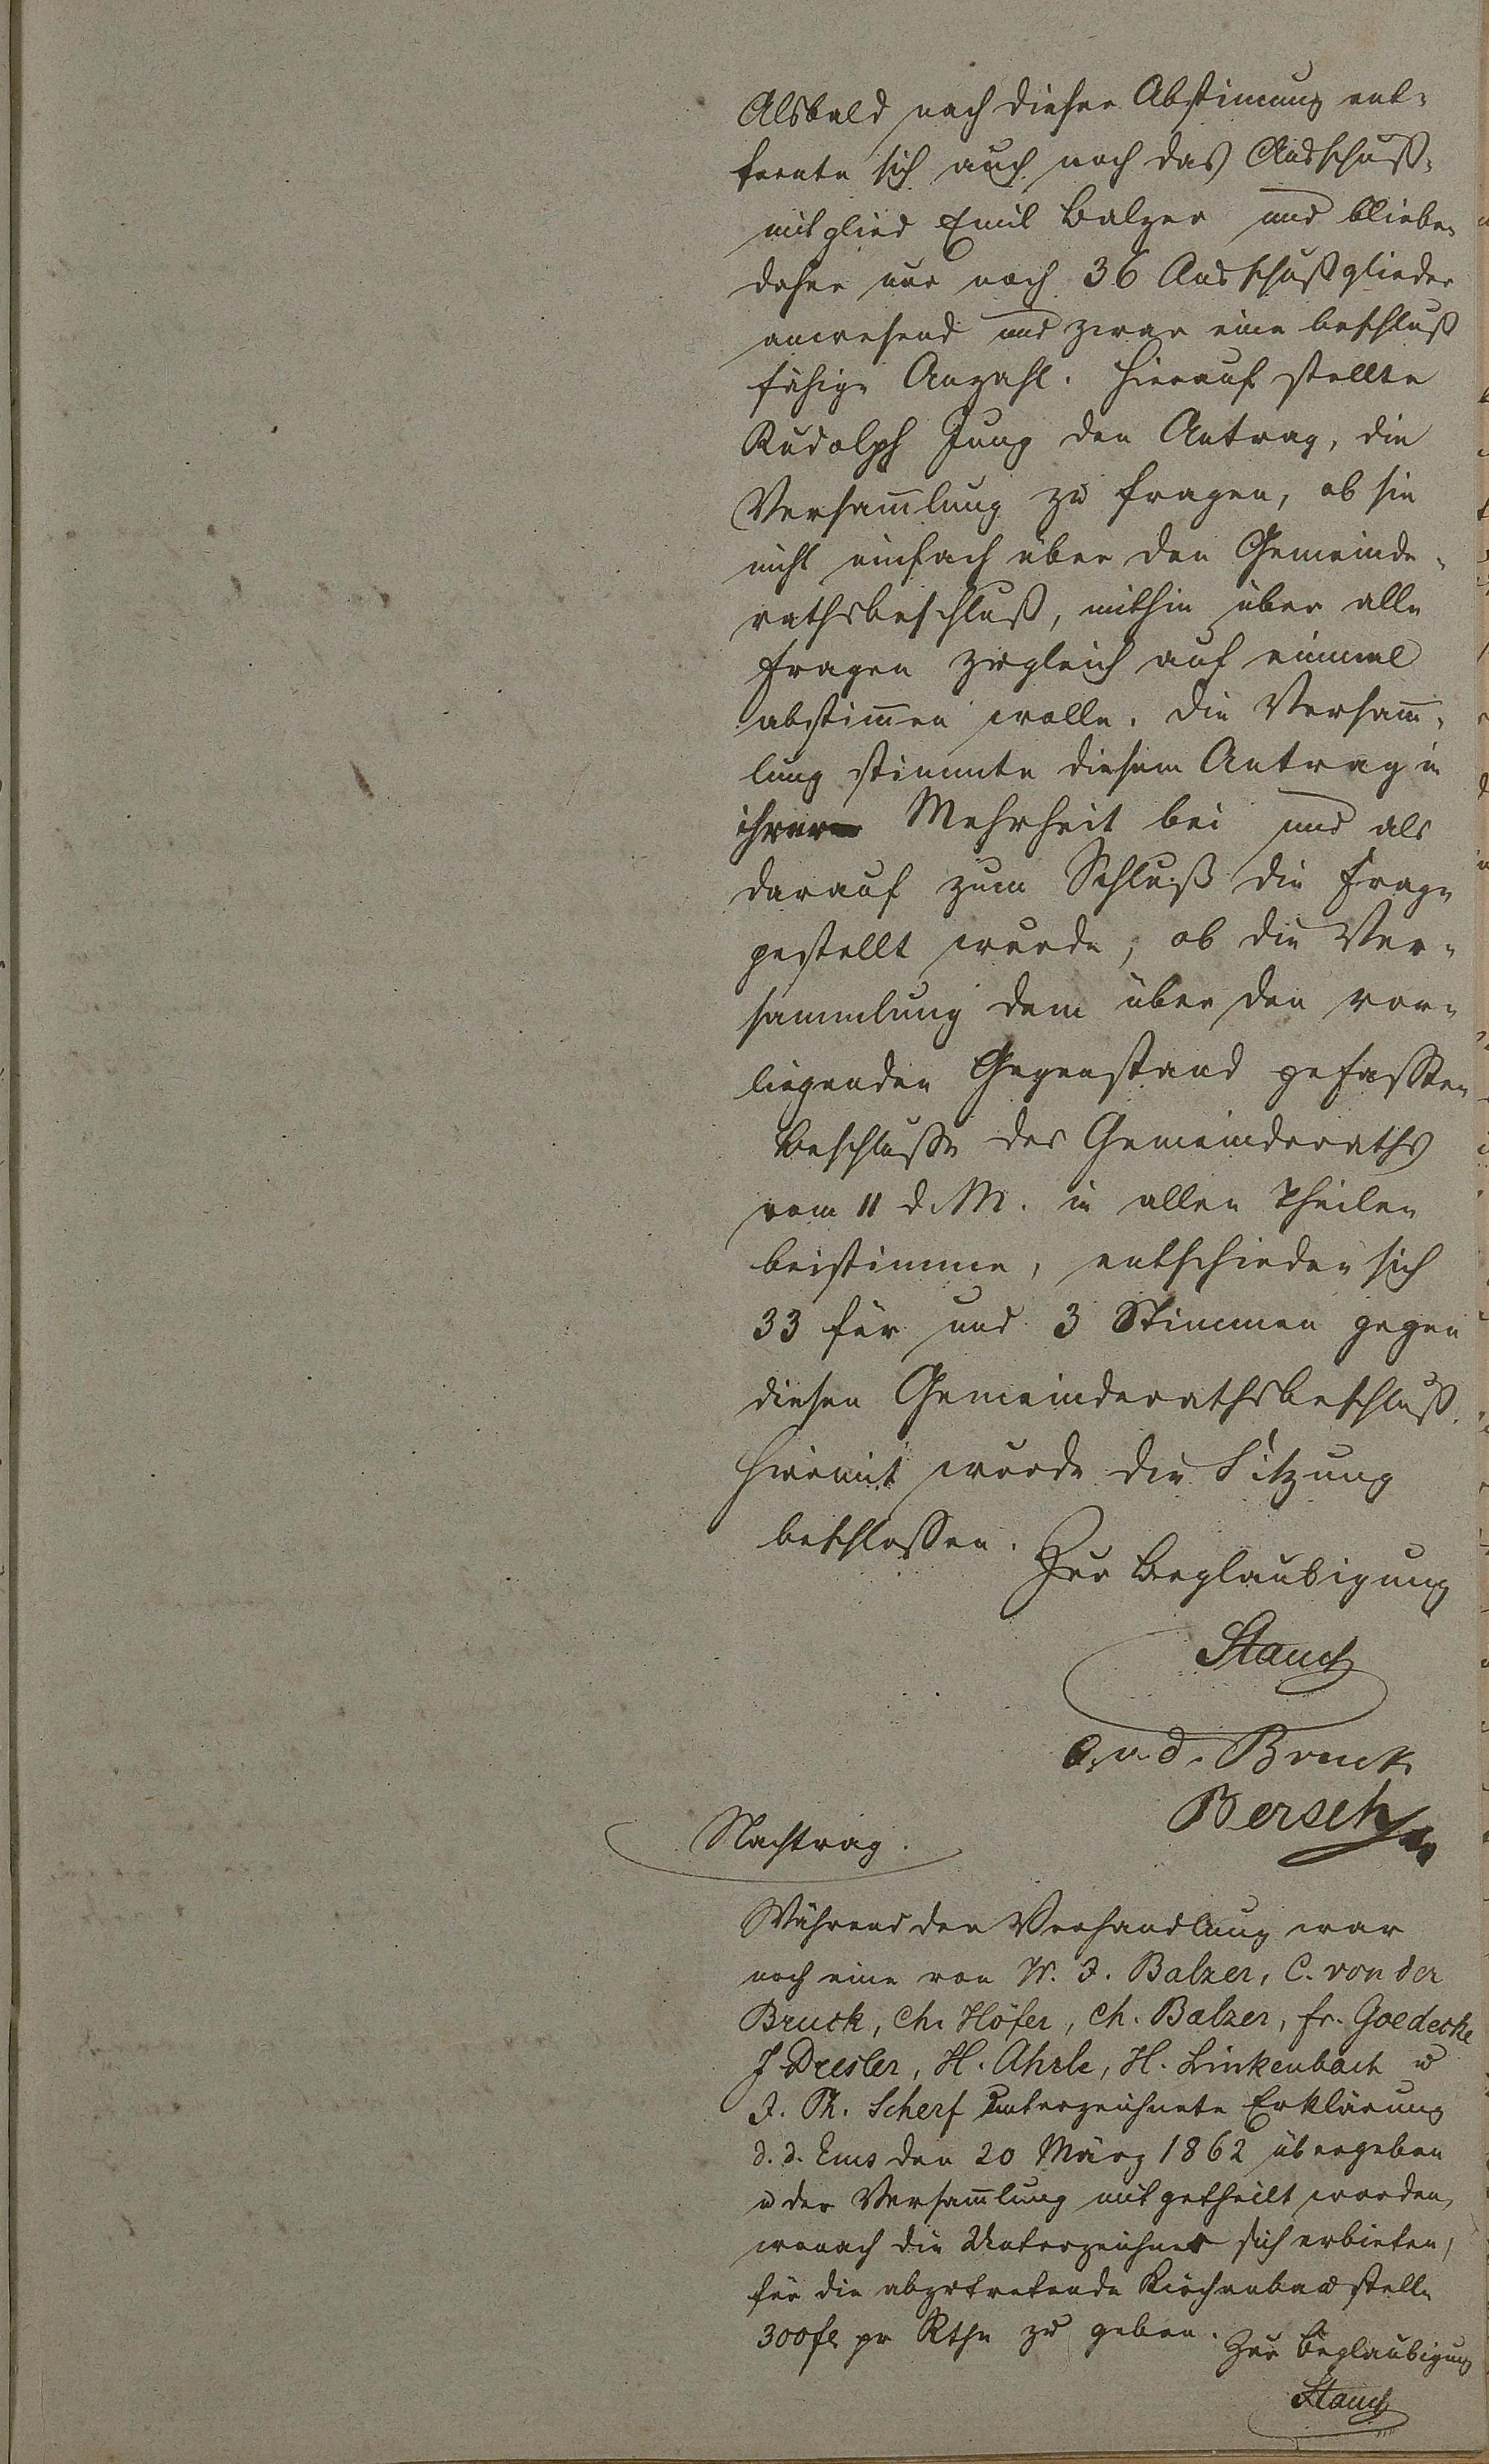 Alsbald nach dieser Abstimung ent-
fernte sich auch noch das Ausschuß-
mitglied Emil Balzer und blieben
daher nur noch 36 Ausschußglieder
anwesend und zwar eine beschluß
fähige Anzahl. Hierauf stellte
Rudolph Jung den Antrag, die
Versam̅lung zu fragen, ob sie
nicht einfach über den Gemeinde-
rathsbeschluß, mithin über alle
Fragen zugleich auf einmal
abstim̅en wolle. Die Versam̅-
lung stimmte diesem Antrag in
ihrer Mehrheit bei und als
darauf zum Schluß die Frage
gestellt wurde, ob die Ver-
sammlung dem über den vor-
liegenden Gegenstand gefassten
Beschlusse des Gemeinderaths
vom 11 d. M. in allen Theilen
beistimme, entschieden sich
33 für und 3 Stimmen gegen
diesen Gemeinderathsbeschluß.
Hiermit wurde die Sitzung
beschlossen.
Zur Beglaubigung
Stauch
v. d. Bruck
Bersch
Nachtrag.
Während der Verhandlung war
noch eine von W. J. Balzer, C. von der
Bruck, Ch. Höfer, Ch. Balzer, Fr. Goedecke
J Dresler, H. Ahrle, H. Linkenbach u
J. Ph. Scherf unterzeichnete Erklärung
d. d. Ems den 20 März 1862 übergeben
u der Versam̅lung mitgetheilt worden,
wonach die Unterzeichner sich erbieten,
für die abzutretende Kirchenbaustelle
300 fl pr Rthe zu geben.
Zur Beglaubigung
Stauch